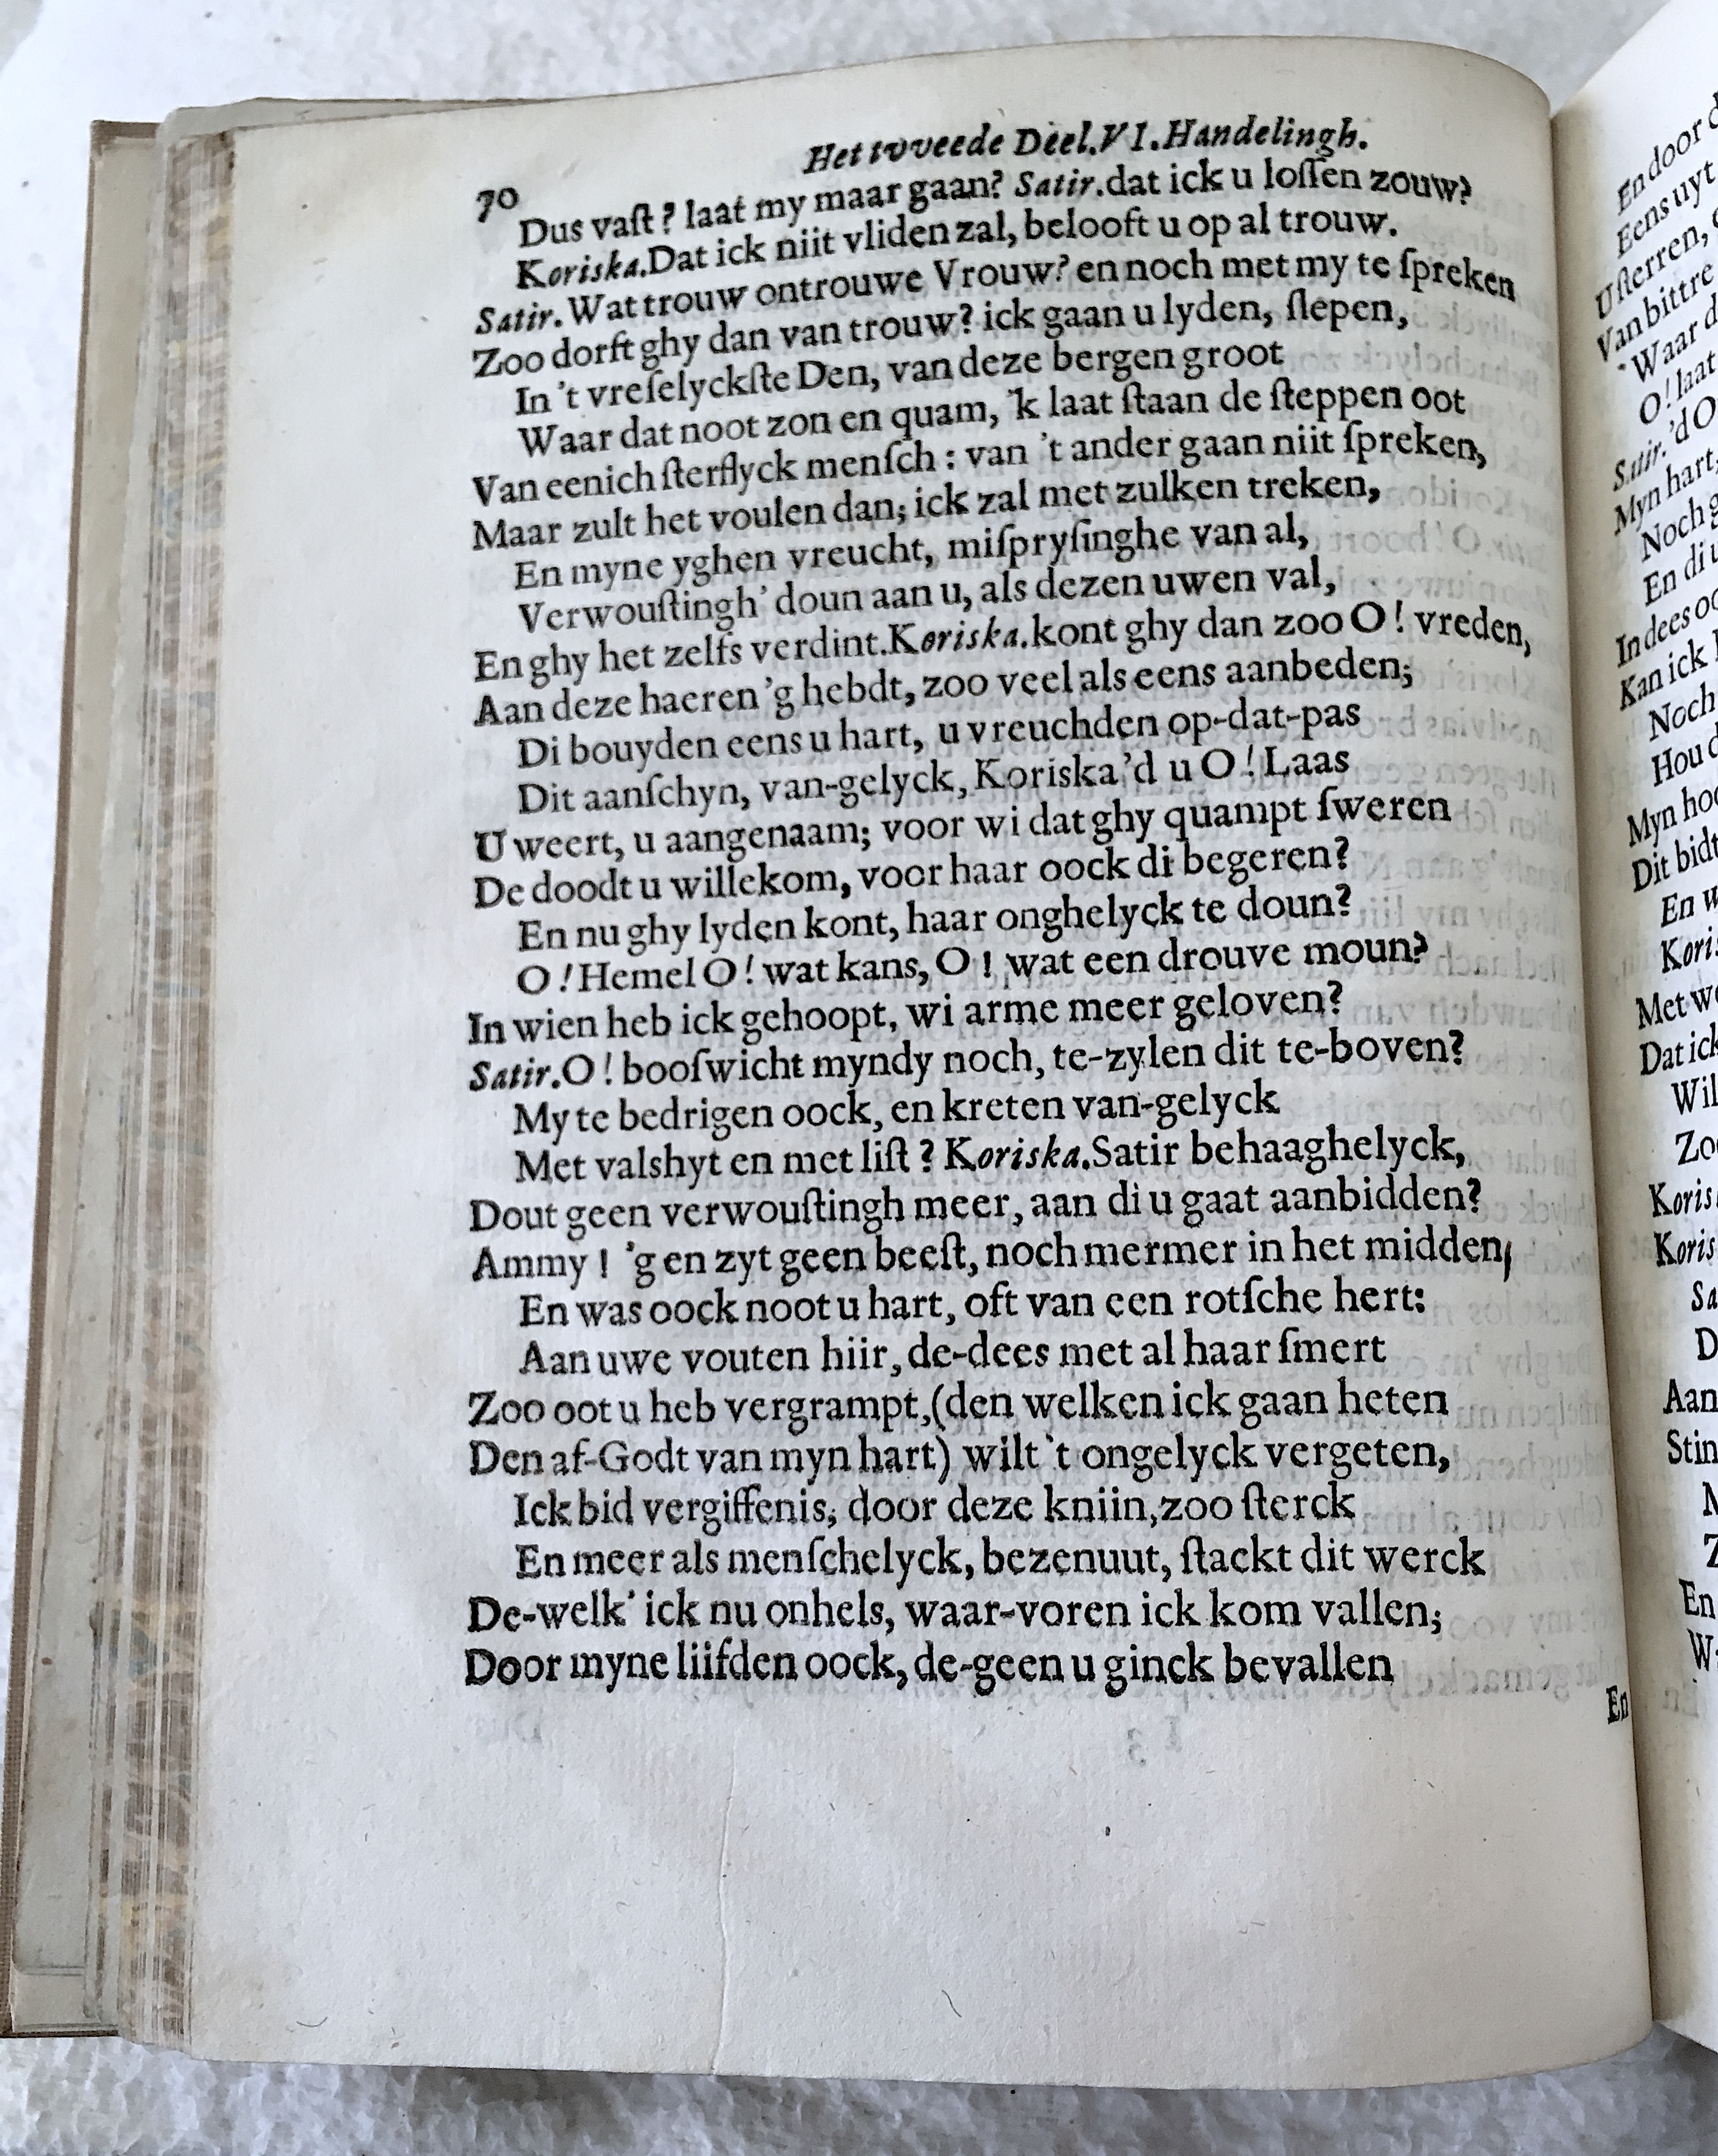 Het tvveede Deel.VI.Handelingh.
70
Dus vaſt? laat my maar gaan? Satir.dat ick u loſſen zouw?
Koriska.Dat ick niit vliden zal, belooft u op al trouw.
Satir.Wat trouw ontrouwe Vrouw? en noch met my te ſpreken
Zoo dorft ghy dan van trouw? ick gaan u lyden, ſlepen,
In 't vreſelyckſte Den, van deze bergen groot
Waar dat noot zon en quam, 'k laat ſtaan de ſteppen oot
Van eenich ſterflyck menſch: van 't ander gaan niit ſpreken,
Maar zult het voulen dan; ick zal met zulken treken,
En myne yghen vreucht, miſpryſinghe van al,
Verwouſtingh' doun aan u, als dezen uwen val,
En ghy het zelfs verdint.Koriska.kont ghy dan zoo O! vreden,
Aan deze haeren 'g hebdt, zoo veel als eens aanbeden;
Di bouyden eens u hart, u vreuchden op-dat-pas
Dit aanſchyn, van-gelyck, Koriska 'd u O! Laas
U weert, u aangenaam; voor wi dat ghy quampt ſweren
De doodt u willekom, voor haar oock di begeren?
En nu ghy lyden kont, haar onghelyck te doun?
O! Hemel O! wat kans, O! wat een drouve moun?
In wien heb ick gehoopt, wi arme meer geloven?
Satir.O! booſwicht myndy noch, te-zylen dit te-boven?
My te bedrigen oock, en kreten van-gelyck
Met valshyt en met liſt? Koriska.Satir behaaghelyck,
Dout geen verwouſtingh meer, aan di u gaat aanbidden?
Ammy! 'g en zyt geen beeſt, noch mermer in het midden,
En was oock noot u hart, oft van een rotſche hert:
Aan uwe vouten hiir, de-dees met al haar ſmert
Zoo oot u heb vergrampt,(den welken ick gaan heten
Den af-Godt van myn hart) wilt 't ongelyck vergeten,
Ick bid vergiffenis, door deze kniin,zoo ſterck
En meer als menſchelyck, bezenuut, ſtackt dit werck
De-welk' ick nu onhels, waar-voren ick kom vallen;
Door myne liifden oock, de-geen u ginck bevallen
En
En door
Eens uyt
U ſterren,
Van bittre
Waar
O! laat
Satir. 'd
Myn hart,
Noch
En di
In dees
Kan ick
Noch
Hou
Myn
Dit bidt
En
Met
Dat ick
Wil